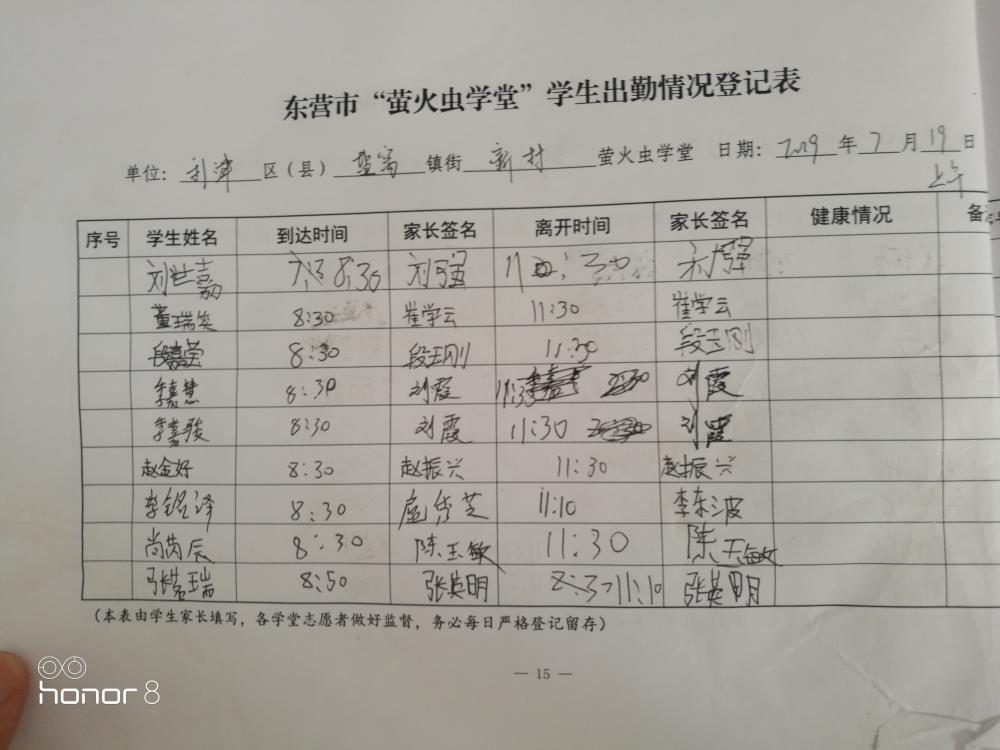 东营市“萤火虫学堂”学生出勤情况登记表
单位：利津区（县）盐窝镇街新村萤火虫学堂 日期：2019年7月19日
上午
序号 学生姓名 到达时间 家长签名 离开时间 家长签名 健康情况 备注
刘世嘉 8:30 刘强 11:30 刘强
董瑞 8:30 崔学云 11:30 崔学云
段嘉 8:30 段玉刚 11:30 段玉刚
李嘉慧 8:30 刘霞 11:30 刘霞
李嘉骏 8:30 刘霞 11:30 刘霞
赵金好 8:30 赵振兴 11:30 赵振兴
李铭泽 8:30 扈秀芝 11:10 李东波
尚芮辰 8:30 陈玉敏 11:30 陈玉敏
张 瑞 8:50 张英明 11:10 张英明
（本表由学生家长填写，各学堂志愿者做好监督，务必每日严格登记留存）
— 15 —
honor 8